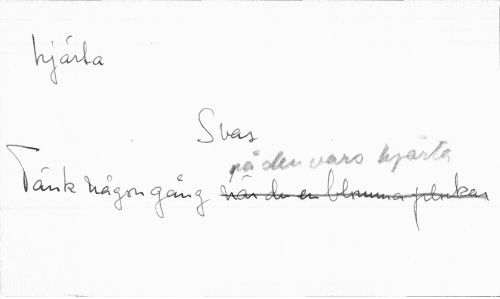 hjärta
Svar
på den vars hjärta
Tänk någon gång när du en blomma plockar